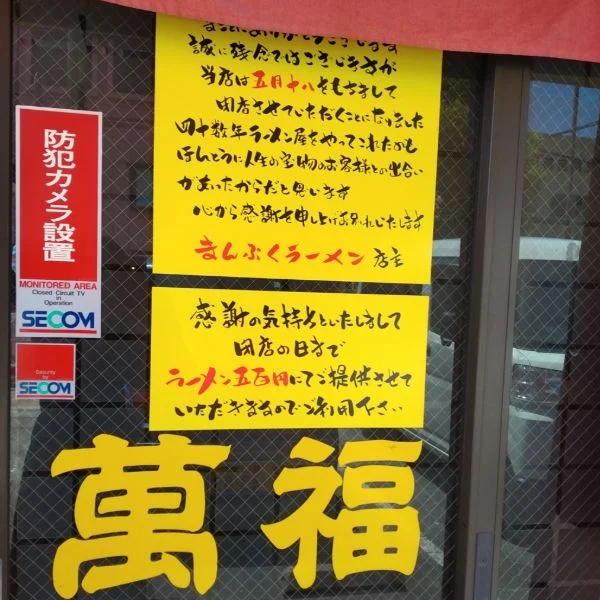 まことにありがとうございます
誠に残念ではございますが
当店は五月十八をもちまして
閉店させていただくことになりました
四十数年ラーメン屋をやってこれたのも
ほんとうに人生の宝物のお客様との出合い
があったからだと思います
心から感謝を申し上げお別れいたします
まんぷくラーメン 店主
感謝の気持ちといたしまして
閉店の日まで
ラーメン五百円にてご提供させて
いただきますなのでご利用下さい
防犯カメラ設置
MONITORED AREA
Closed Circuit TV
in
Operation
SECOM
Security
by
SECOM
萬福